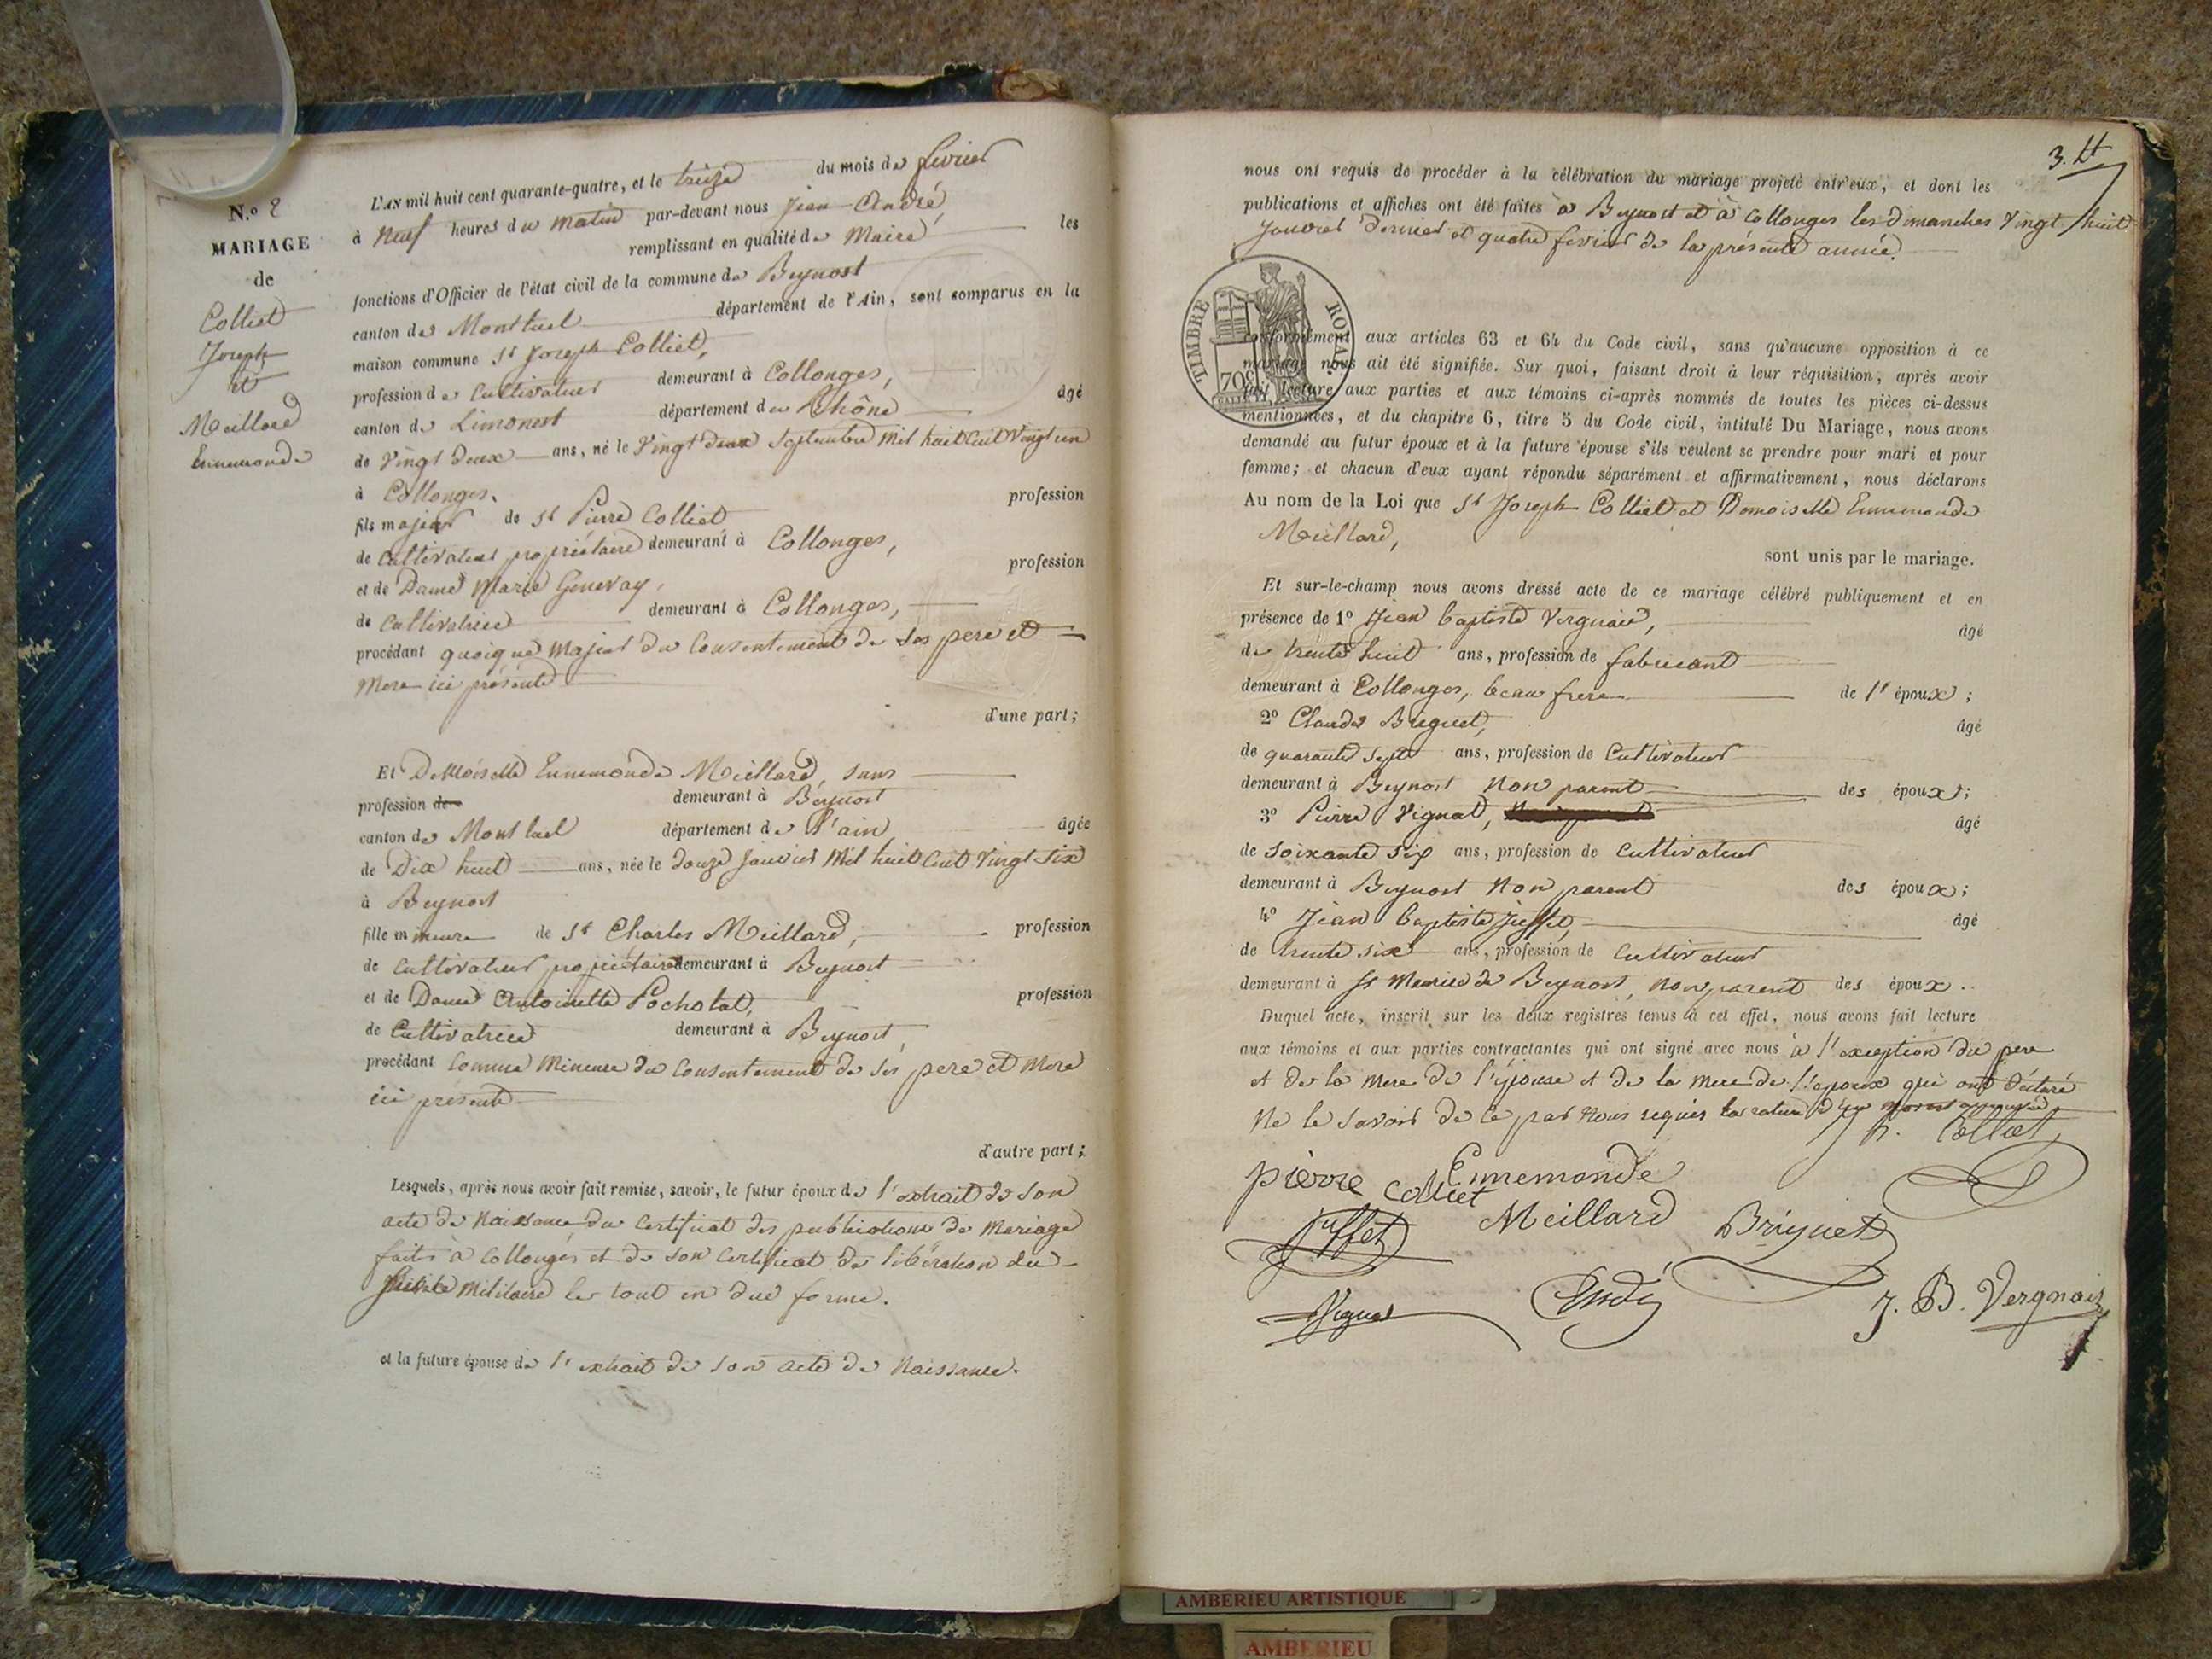 N.o 2
MARIAGE
de
Colliet
Joseph
et
Meillard
Ennemonde
L'AN mil huit cent quarante-quatre, et le treize du mois de fevrier
à Neuf heures du matin par-devant nous Jean André,
remplissant en qualité de Maire les
fonctions d'Officier de l'état civil de la commune de Beynost
canton de Montluel département de l'Ain, sont comparus en la
maison commune Sr Joseph Colliet,
profession de Cultivateur demeurant à Collonges,
canton de Limonest département du Rhône âgé
de Vingt deux ans, né le Vingt deux Septembre Mil huit Cent Vingt un
à Collonges.
fils majeur de Sr Pierre Colliet profession
de Cultivateur propriétaire demeurant à Collonges,
et de Dame Marie Genevay, profession
de Cultivatrice demeurant à Collonges,
procédant quoique Majeur du Consentement de ses pere et
Mere ici présents
d'une part;
Et Demoiselle Ennemonde Meillard, sans
profession de demeurant à Beynost
canton de Montluel département de l'ain âgée
de Dix huit ans, née le douze janvier Mil huit Cent Vingt Six
à Beynost
fille mineure de Sr Charles Meillard, profession
de Cultivateur propriétaire demeurant à Beynost
et de Dame Antoinette Pochotat, profession
de Cultivatrice demeurant à Beynost,
procédant Comme Mineure du Consentement de ses pere et Mere
ici présents
d'autre part;
Lesquels, après nous avoir fait remise, savoir, le futur époux de l'extrait de son
acte de Naissance du Certificat des publications de Mariage
faites à Collonges et de son Certificat de libération du
Service Militaire le tout en due forme.
et la future épouse de l'extrait de son acte de Naissance.
3. Lt
nous ont requis de procéder à la célébration du mariage projeté entr'eux, et dont les
publications et affiches ont été faites à Beynost et à Collonges les Dimanches Vingt huit
Janvier Dernier et quatre fevrier de la présente année.
TIMBRE ROYAL
70c
conformément aux articles 63 et 64 du Code civil, sans qu'aucune opposition à ce
mariage nous ait été signifiée. Sur quoi, faisant droit à leur réquisition, après avoir
fait lecture aux parties et aux témoins ci-après nommés de toutes les pièces ci-dessus
mentionnées, et du chapitre 6, titre 5 du Code civil, intitulé Du Mariage, nous avons
demandé au futur époux et à la future épouse s'ils veulent se prendre pour mari et pour
femme; et chacun d'eux ayant répondu séparément et affirmativement, nous déclarons
Au nom de la Loi que Sr Joseph Colliet et Demoiselle Ennemonde
Meillard,
sont unis par le mariage.
Et sur-le-champ nous avons dressé acte de ce mariage célébré publiquement et en
présence de 1o Jean baptiste Vergnais, âgé
de trente huit ans, profession de fabricant
demeurant à Collonges, beau frere de l' époux;
2o Claude Briguet, âgé
de quarante sept ans, profession de Cultivateur
demeurant à Beynost Non parent des époux;
3o Pierre Vignat, âgé
de soixante six ans, profession de Cultivateur
demeurant à Beynost Non parent des époux;
4o Jean baptiste Juffet, âgé
de trente six ans, profession de Cultivateur
demeurant à St Maurice de Beynost, Non parent des époux.
Duquel acte, inscrit sur les deux registres tenus à cet effet, nous avons fait lecture
aux témoins et aux parties contractantes qui ont signé avec nous à l'exception du pere
et de la mere de l'épouse et de la mere de l'époux qui ont déclaré
Ne le savoir de ce par Nous requis
Colliet
pierre Colliet
Ennemonde
Meillard
Juffet
Briguet
Vignat
André
J. B. Vergnais
AMBERIEU ARTISTIQUE
AMBERIEU